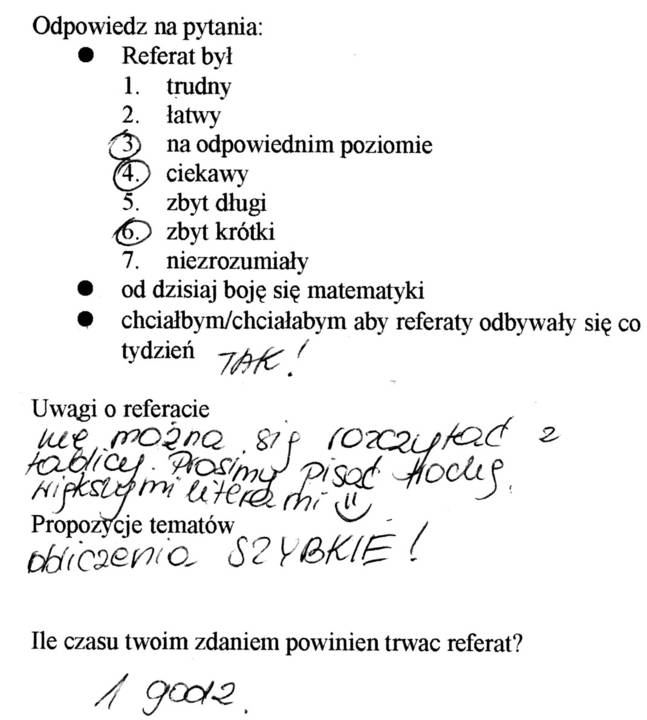 Odpowiedz na pytania:
● Referat był
1. trudny
2. łatwy
3. na odpowiednim poziomie
4. ciekawy
5. zbyt długi
6. zbyt krótki
7. niezrozumiały
● od dzisiaj boję się matematyki
● chciałbym/chciałabym aby referaty odbywały się co
tydzień TAK!
Uwagi o referacie
nie można się rozczytać z
tablicy. Prosimy pisać trochę
większymi literami
Propozycje tematów
obliczenia SZYBKIE!
Ile czasu twoim zdaniem powinien trwac referat?
1 godz.